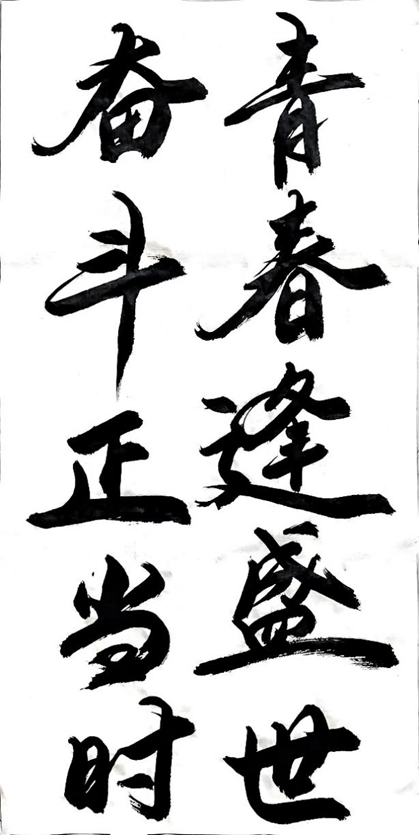 青春逢盛世
奋斗正当时